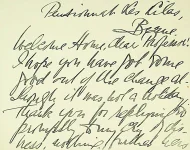 Pensionnat Les Lilas,
Bogue.
Welcome Home, dear Professor!
I hope you have got some
good out of the change al-
though it was not a holiday.
Thank you for replying so
promptly to my
news, nothing further